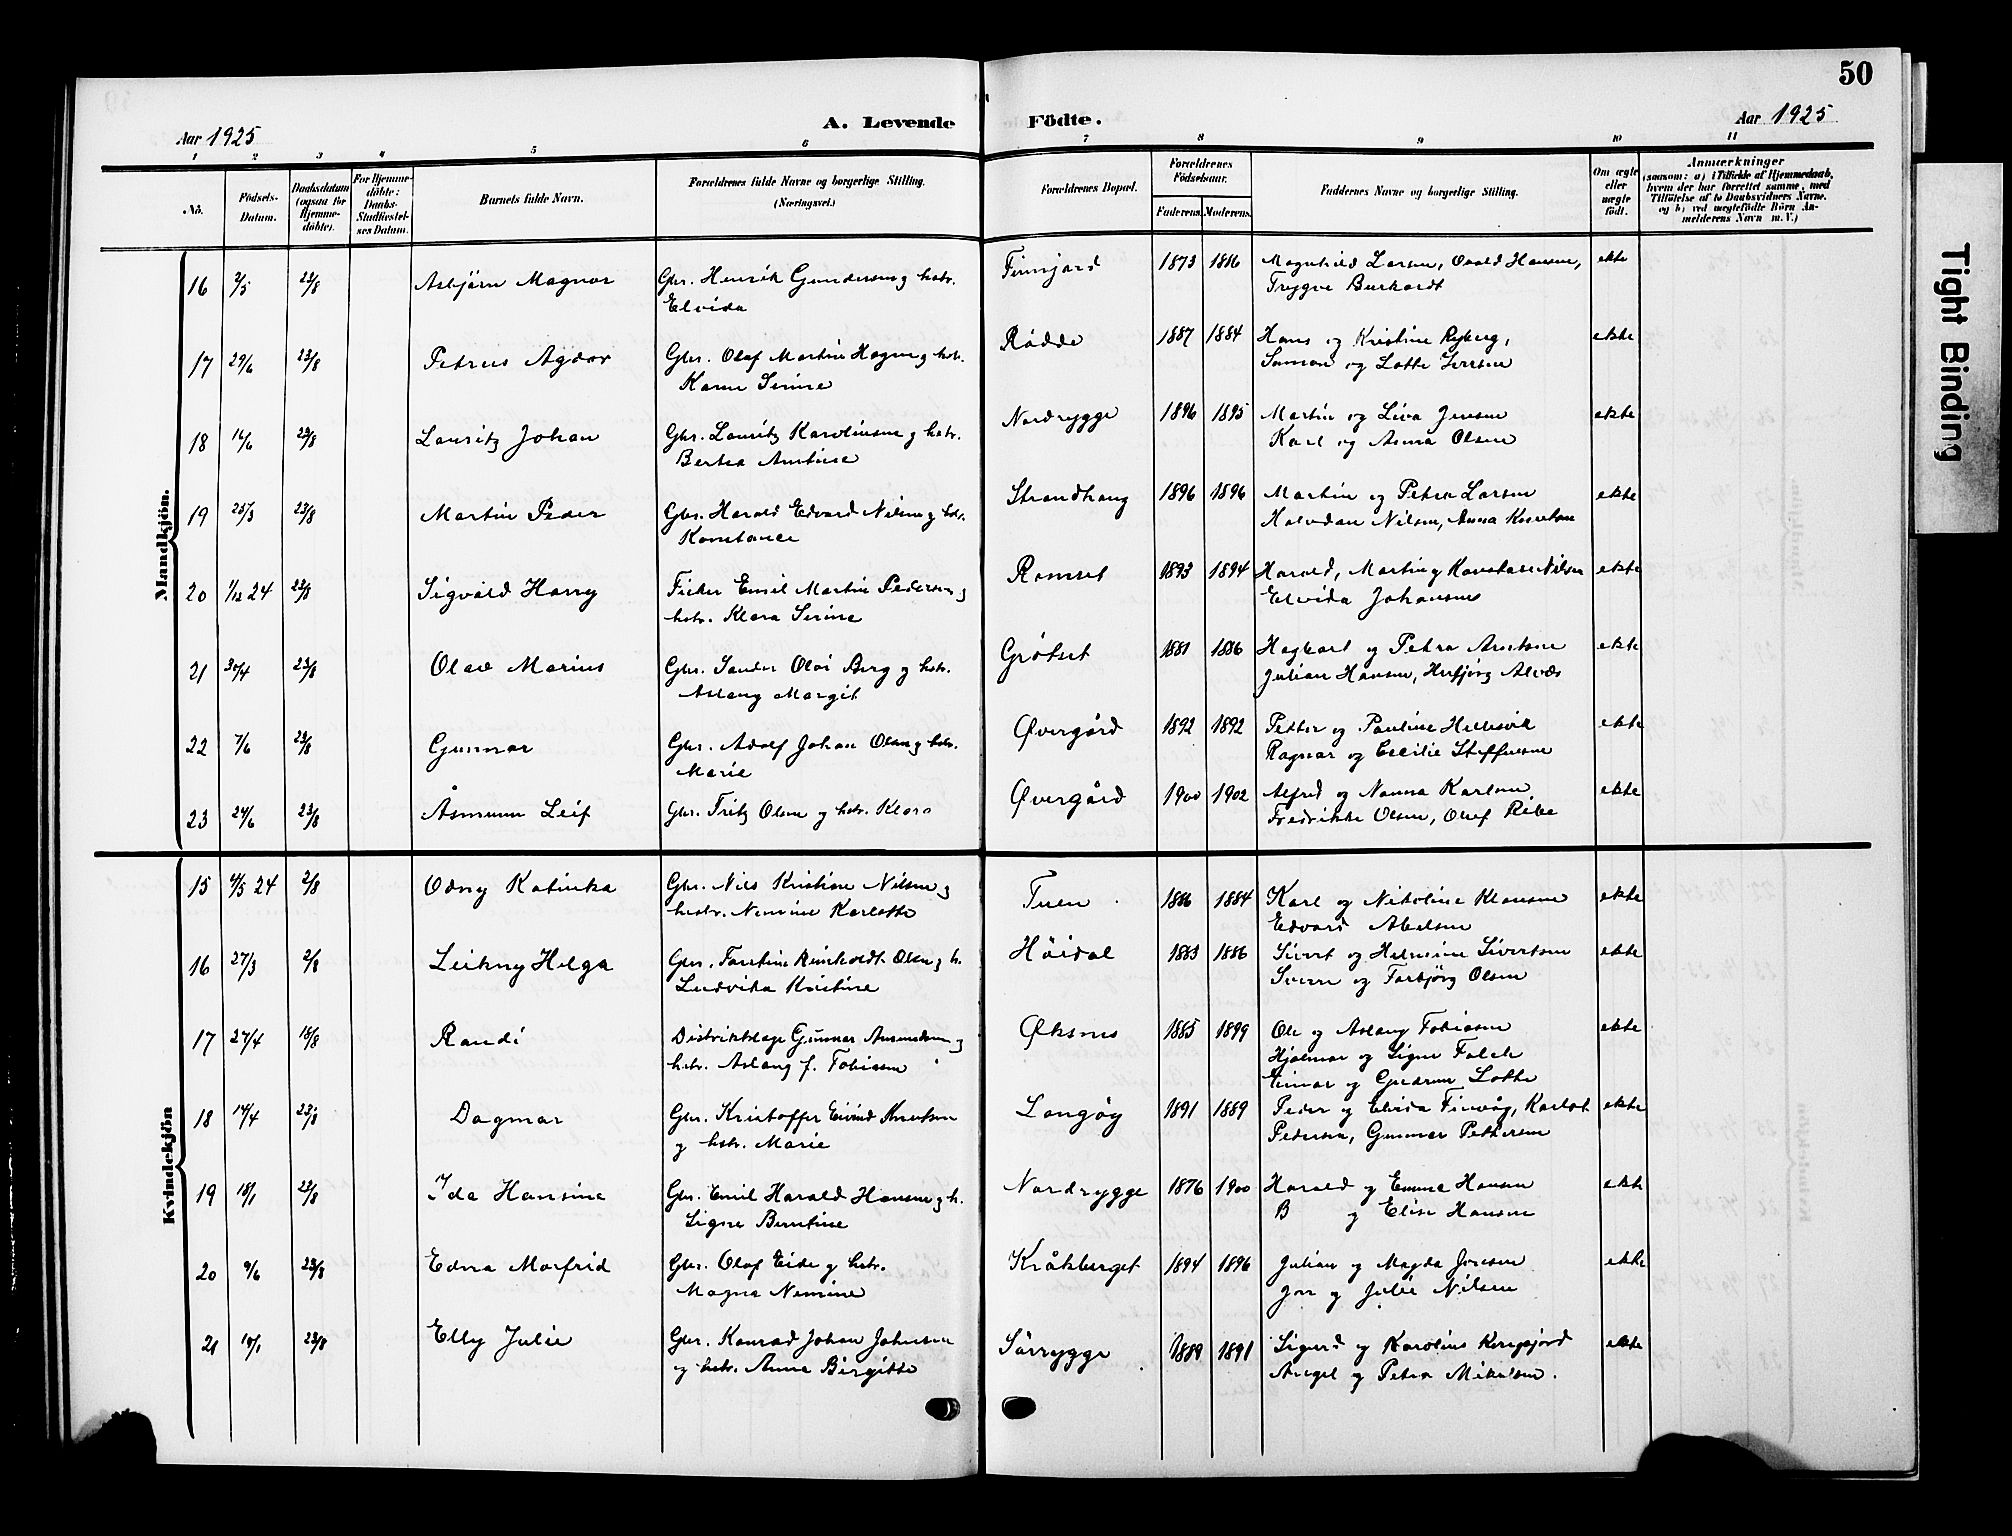 50
Aar 1925
A. Levende Födte.
Aar 1925
1 2 3 4 5 6 7 8 9 10 11
No.
Födsels-Datum.
Daabsdatum (ogsaa for Hjemme-döbte).
For Hjemme-döbte: Daabs-Stadfæstel-ses Datum.
Barnets fulde Navn.
Forældrenes fulde Navne og borgerlige Stilling.
(Næringsvei.)
Forældrenes Bopæl.
Forældrenes Födselsaar.
Faderens. Moderens.
Faddernes Navne og borgerlige Stilling.
Om ægte eller uægte födt.
Anmærkninger
(saasom: a) i Tilfælde af Hjemmedaab, hvem der har forrettet samme, med Tilföielse af to Daabsvidners Navne, og b) ved uægtefödte Börn An-melderens Navn m. V.)
Mandkjön.
16 2/5 23/8 Asbjörn Magnor Gbr. Henrik Gundersen og hstr. Finnjord 1873 1886 Magnhild Larsen, Osvald Hansen, ekte
Elvida Trygve Burkardt
17 29/6 23/8 Petrus Agdor Gbr. Olaf Martin Hagen og hstr. Rödde 1887 1884 Hans og Kristine Ryberg, ekte
Karen Serine Samson og Lotte Iversen
18 16/6 23/8 Lauritz Johan Gbr. Lauritz Karolinsen og hstr. Nordrygge 1896 1895 Martin og Liva Jensen ekte
Bertea Arntine Karl og Anna Olsen
19 25/3 23/8 Martin Peder Gbr. Harald Edvard Nilsen og hstr. Strandhaug 1896 1896 Martin og Petra Larsen ekte
Konstance Halvdan Nilsen, Anna Knutsen
20 1/12 24 23/8 Sigvald Harry Fisker Emil Martin Pedersen og Romset 1893 1894 Harald, Martin og Konstanse Nilsen ekte
hstr. Klara Serine Elvida Johansens
21 30/4 23/8 Olav Marius Gbr. Sander Olai Berg og hstr. Grötset 1881 1886 Hagbart og Petra Arntsen ekte
Aslaug Margit Julian Hansen, Herbjörg Alvæs
22 7/6 23/8 Gunnar Gbr. Adolf Johan Olsen og hstr. Øvergård 1892 1892 Petter og Pauline Hellesvik ekte
Marie Ragnar og Cecilie Steffensen
23 24/6 23/8 Åsmunn Leif Gbr. Fritz Olsen og hstr. Klara Øvergård 1900 1902 Alfred og Nanna Karlsen ekte
Fredrikke Olsen, Oluf Ribe
Kvindekjön
15 4/5 24 2/8 Odny Katinka Gbr. Nils Kristine Nilsen og Tuen 1886 1884 Karl og Nikoline Klausen ekte
hustr. Nemine Karlotte Edvard Abelsen
16 27/3 2/8 Leikny Helga Gbr. Torstine Reinholdt Olsen og h. Höidal 1883 1886 Sivert og Helmine Sivertsen ekte
Ludvika Kristine Sverre og Torbjörg Olsen
17 27/4 18/8 Randi Distriktslæge Gunnar Amundsen og Øksnes 1885 1899 Ole og Aslaug Tobiasen ekte
hstr. Aslaug f. Tobiasen Hjalmar og Signe Falch
Einar og Gudrun Lotte
18 14/4 23/8 Dagmar Gbr. Kristoffer Eivind Knutsen Langöy 1891 1889 Peder og Elvida Finvåg, Karlot ekte
og hstr. Marie Pedersen, Gunnar Pettersen
19 18/1 23/8 Ida Hansine Gbr. Emil Harald Hansen og h. Nordrygge 1876 1900 Harald og Emma Hansen ekte
Signe Berntine B og Elise Hansen
20 9/6 23/8 Edna Morfrid Gbr. Olaf Eide og hstr. Kråkberget 1894 1896 Julian og Magda Jensen ekte
Magna Nemine Jon og Julie Nilsen
21 10/1 23/8 Elly Julie Gbr. Konrad Johan Johnsen Sörrygge 1889 1891 Sigurd og Karoline Korsfjord ekte
og hstr. Anna Birgitte Angel og Petra Mikalsen.
Tight Binding